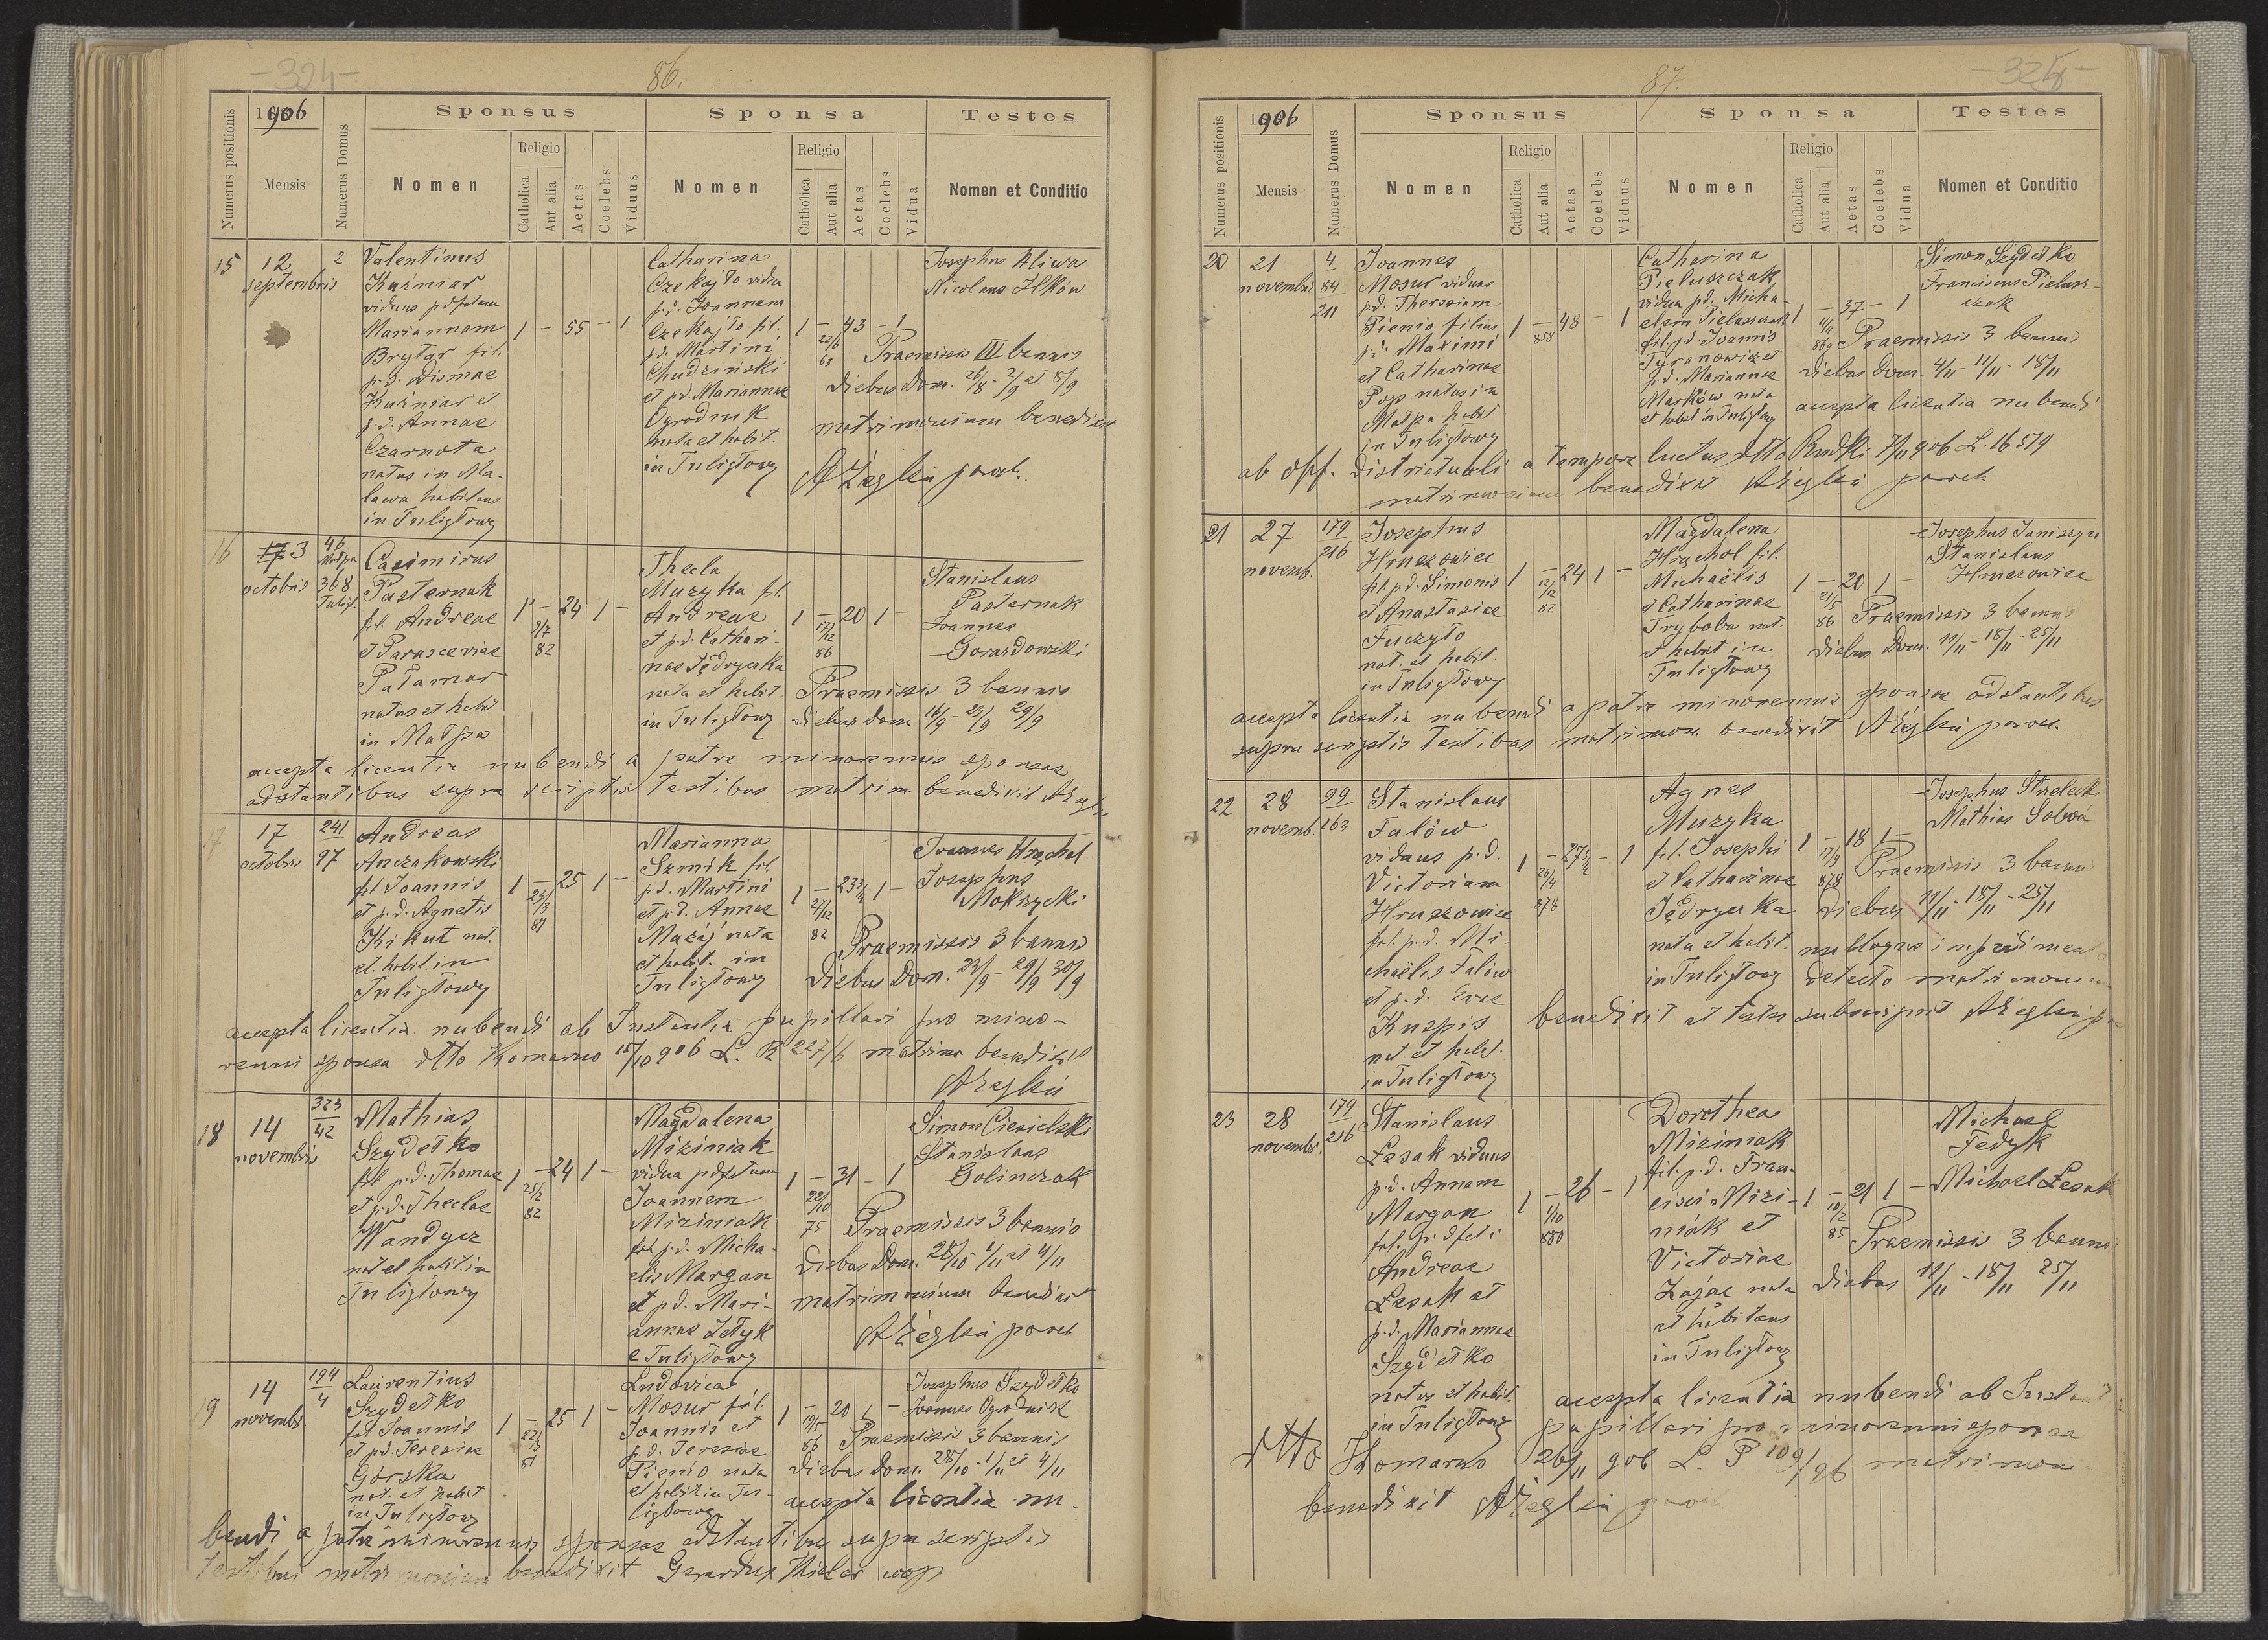 -324-
86.
Numerus positionis
1906
Mensis
Numerus Domus
Sponsus
Nomen
Religio
Catholica
Aut alia
Aetas
Coelebs
Viduus
Sponsa
Nomen
Religio
Catholica
Aut alia
Aetas
Coelebs
Vidua
Testes
Nomen et Conditio
15
12
septembris
2
Valentinus
Kuźniar
viduus p
Mariannam
Brytar fil.
p.d. Dismae
Kuźniar et
p.d. Annae
Czarnota
natus in Ma-
lawa habitans
in Tuligłowy
1 - 55 - 1
Catharina
Czekajło vidua
p.d. Joannem
Czekajło fil.
p.d. Martini
Chudziński
et p.d. Mariannae
Ogrodnik
nata et habit.
in Tuligłowy
1 - 43 - 1
22/6
63
Josephus Aliwa
Nicolaus Ilków
Praemissis III bannis
diebus Dom. 26/8 - 2/9 et 8/9
matrimonium benedixit
AŻeglin paroch.
16
17 3
octobris
46
Małpa
368
Tuligł.
Casimirus
Pasternak
fil. Andreae
et Parasceviae
Pałamar
natus et habit
in Małpa
1 - 24 1 -
9/7
82
Thecla
Muzyka fil.
Andreae
et p.d. Cathari-
nae Jędryczka
nata et habit.
in Tuligłowy
1 - 20 1 -
17/12
86
Stanislaus
Pasternak
Joannes
Gorazdowski
Praemissis 3 bannis
diebus Dom. 16/9 - 23/9 29/9
accepta licentia nubendi a patre minorennis sponsae
adstantibus supra scriptis testibus matrim. benedixit AŻeglin
17
17
octobris
241
97
Andreas
Anczakowski
fil Joannis
et p.d. Agnetis
Kikut nat.
et. habit. in
Tuligłowy
1 - 25 1 -
23/3
81
Marianna
Szmik fil.
p.d. Martini
et p.d. Annae
Mazij nata
et habit. in
Tuligłowy
1 - 23 3/4 1 -
27/12
82
Joannes Hrychol
Josephus
Mokrzycki
Praemissis 3 bannis
diebus Dom. 23/9 - 29/9 30/9
accepta licentia nubendi ab Instantia pupillari pro mino-
renni sponsa dtto Komarno 15/10 906 L. P 227/6 matrim benedixit
AŻeglin
18
14
novembris
323
42
Mathias
Szydełko
fil p.d. Thomae
et p.d. Theclae
Wandycz
nat et habit. in
Tuligłowy
1 - 24 1 -
25/2
82
Magdalena
Miziniak
vidua
Joannem
Miziniak
fil p.d. Micha-
elis Margan
et p.d. Mari-
annae Zełyk
e Tuligłowy
1 - 31 - 1
22/10
75
Simon Ciesielski
Stanislaus
Golinczak
Praemissis 3 bannis
diebus Dom. 28/10 1/11 et 4/11
matrimonium benedixit
AŻeglin paroch
19
14
novembris
194
4
Laurentius
Szydełko
fil Joannis
et p.d. Teresiae
Górska
nat. et habit
in Tuligłowy
1 - 25 1 -
81
Ludovica
Mosur fil.
Joannis et
p.d. Teresiae
Pienio nata
et habit in Tu-
ligłowy
1 - 20 1 -
19/5
86
Josephus Szydełko
Joannes Ogrodnik
Praemissis 3 bannis
diebus Dom. 28/10 - 1/11 et 4/11
accepta licentia nu-
bendi a patre minorennis sponsae adstantibus supra scriptis
testibus matrimonium benedixit Gerardus
87.
-325-
Numerus positionis
1906
Mensis
Numerus Domus
Sponsus
Nomen
Religio
Catholica
Aut alia
Aetas
Coelebs
Viduus
Sponsa
Nomen
Religio
Catholica
Aut alia
Aetas
Coelebs
Vidua
Testes
Nomen et Conditio
20
21
novembris
4
84
211
Joannes
Mosur viduus
p.d. Theresiam
Pienio filius
p.d. Maximi
et Catharinae
Pop natus in
Małpa habit
in Tuligłowy
1 - 48 - 1
858
Catharina
Pieluszczak
vidua p.d. Micha-
elem Pieluszczak
fil. p.d. Joannis
Tyranowicz et
p.d. Mariannae
Maśków nata
et habit in Tuligłowy
1 - 37 - 1
4/11
869
Simon Szydełko
Franciscus Pielusz-
czak
Praemissis 3 bannis
diebus Dom. 4/11 - 11/11 - 18/11
accepta licentia nubendi
ab off. Districtuali a tempore luctus dtto Rudki 7/11 906 L. 16519
matrimonium benedixit AŻeglin paroch.
21
27
novemb.
179
216
Josephus
Hruszowiec
fil. p.d. Simonis
et Anastasiae
Fuczyło
nat. et habit.
in Tuligłowy
1 - 24 1 -
12/12
82
Magdalena
Hrychol fil.
Michaëlis
et Catharinae
Tryboba nat.
et habit in
Tuligłowy
1 - 20 1 -
21/5
86
Josephus Janiszyn
Stanislaus
Hruszowiec
Praemissis 3 bannis
diebus Dom. 11/11 - 18/11 - 25/11
accepta licentia nubendi a patre minorennis sponsae adstantibus
supra scriptis testibus matrimon. benedixit AŻeglin paroch.
22
28
novemb.
99
163
Stanislaus
Falów
viduus p.d.
Victoriam
Hruszowiec
fil. p.d. Mi-
chaëlis Falów
et p.d. Evae
Kuspis
nat. et habit.
in Tuligłowy
1 - 27 1/2 - 1
20/4
878
Agnes
Muzyka
fil. Josephi
et Catharinae
Jędryczka
nata et habit.
in Tuligłowy
1 - 18 1 -
17/9
878
Josephus Strzelecki
Mathias Sobwa
Praemissis 3 bannis
diebus 11/11 - 18/11 - 25/11
nulloque impedimento
detecto matrimonium
benedixit et testes subscripsit AŻeglin
23
28
novembr.
179
216
Stanislaus
Lesak viduus
p.d. Annam
Margan
fil.
Andreae
Lesak et
p.d. Mariannae
Szydełko
natus et habit
in Tuligłowy
1 - 26 - 1
1/10
880
Dorothea
Miziniak
fil. p.d. Fran-
cisci Mizi-
niak et
Victoriae
Zając nata
et habitans
in Tuligłowy
1 - 21 1 -
10/2
85
Michael
Fedyk
Michael Lesak
Praemissis 3 bannis
diebus 11/11 - 18/11 25/11
accepta licentia nubendi ab Instantia
pupillari pro minorenni sponsa
dtto Komarno 26/11 906 L. P 109/96 matrimon
benedixit AŻeglin paroch